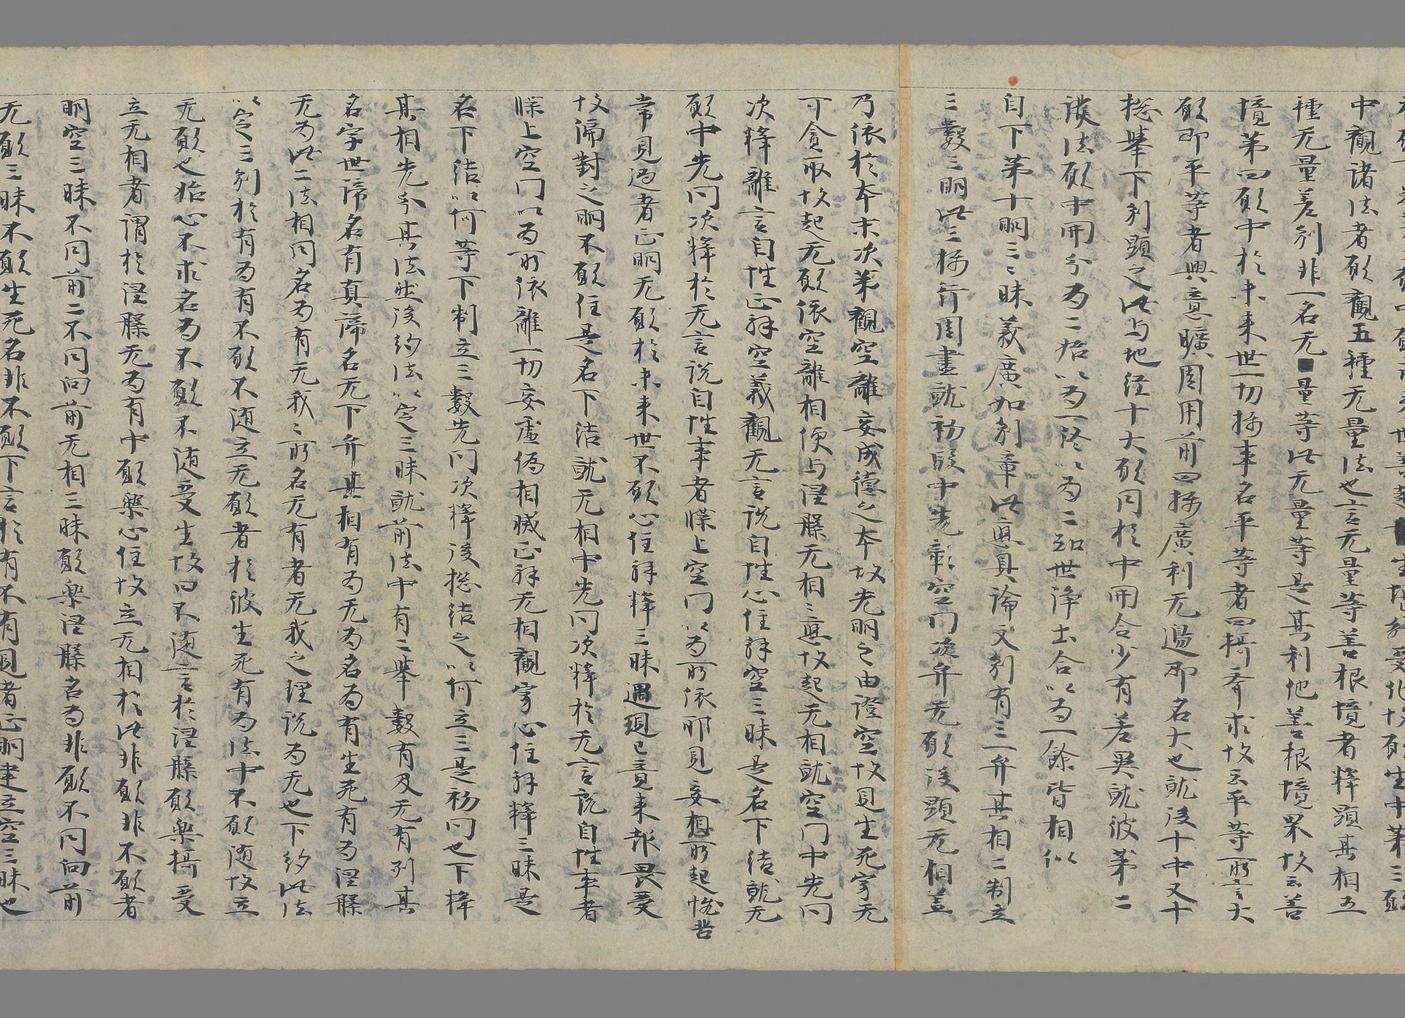 中觀諸法者願觀五種无量法也言无量等善根境者釋顯其相五
種无量差別非一名无量等此无量等是其利他善根境界故云善
境第四願中於未來世一切揚事名平等者四揚齊求故云平等所言大
願即平等者興意曠周用前四揚廣利无邊即名大也就後十中又十
揔舉下別顯之此与地經十大願同於中開合少有差異就彼第二
護法願中開分為二始以為一終以為二到世淨土合以為一餘皆相似
自下第十明三三昧義廣如別章此直真論文別有三一弁其相二制立
三數三明此三揚行周盡就初段中先彰空門次弁无願後顯无相蓋
乃依於本末次第觀空離妄成德之本故先明之由證空故見生死家无
可貪取故起无願依空離相便与涅槃无相應故起无相就空門中先問
次釋離言自性正釋空義觀无言說自性心住釋空三昧是名下結就无
願中先問次釋於无言說自性事者牒上空門以為所依耶見妄想所起惱苦
常見過者正明无願於未來世不願心住釋釋三昧遇現已責来報畏受
故偏對之明不願住是名下結就无相中先問次釋於无言說自性事者
牒上空門以為所依離一切妄虛偽相滅正釋无相觀家心住釋釋三昧是
名下結以何等下制立三數先問次釋後揔結之以何立三是初問也下釋
其相先分其法然後約法以定三昧就前法中有二舉數有及无有列其
名字世諦名有真諦名无下弁其相有為无為名為有生死有為涅槃
无為此二法相同名為有无我我所名无有者无我之理說為无也下約此法
以定三別於有為有不願不随立无願者於彼生死有為法中不願随故立
无願也始心不求名為不願不随受生故曰不随言於涅槃願樂攝受
立无相者謂於涅槃无為有中願樂心住故立无相於此非願非不願者
明空三昧不同前二不同向前无相三昧願樂涅槃名為非願不同向前
无願三昧不願生死名非不願下言於有不有見者正明建立空三昧也